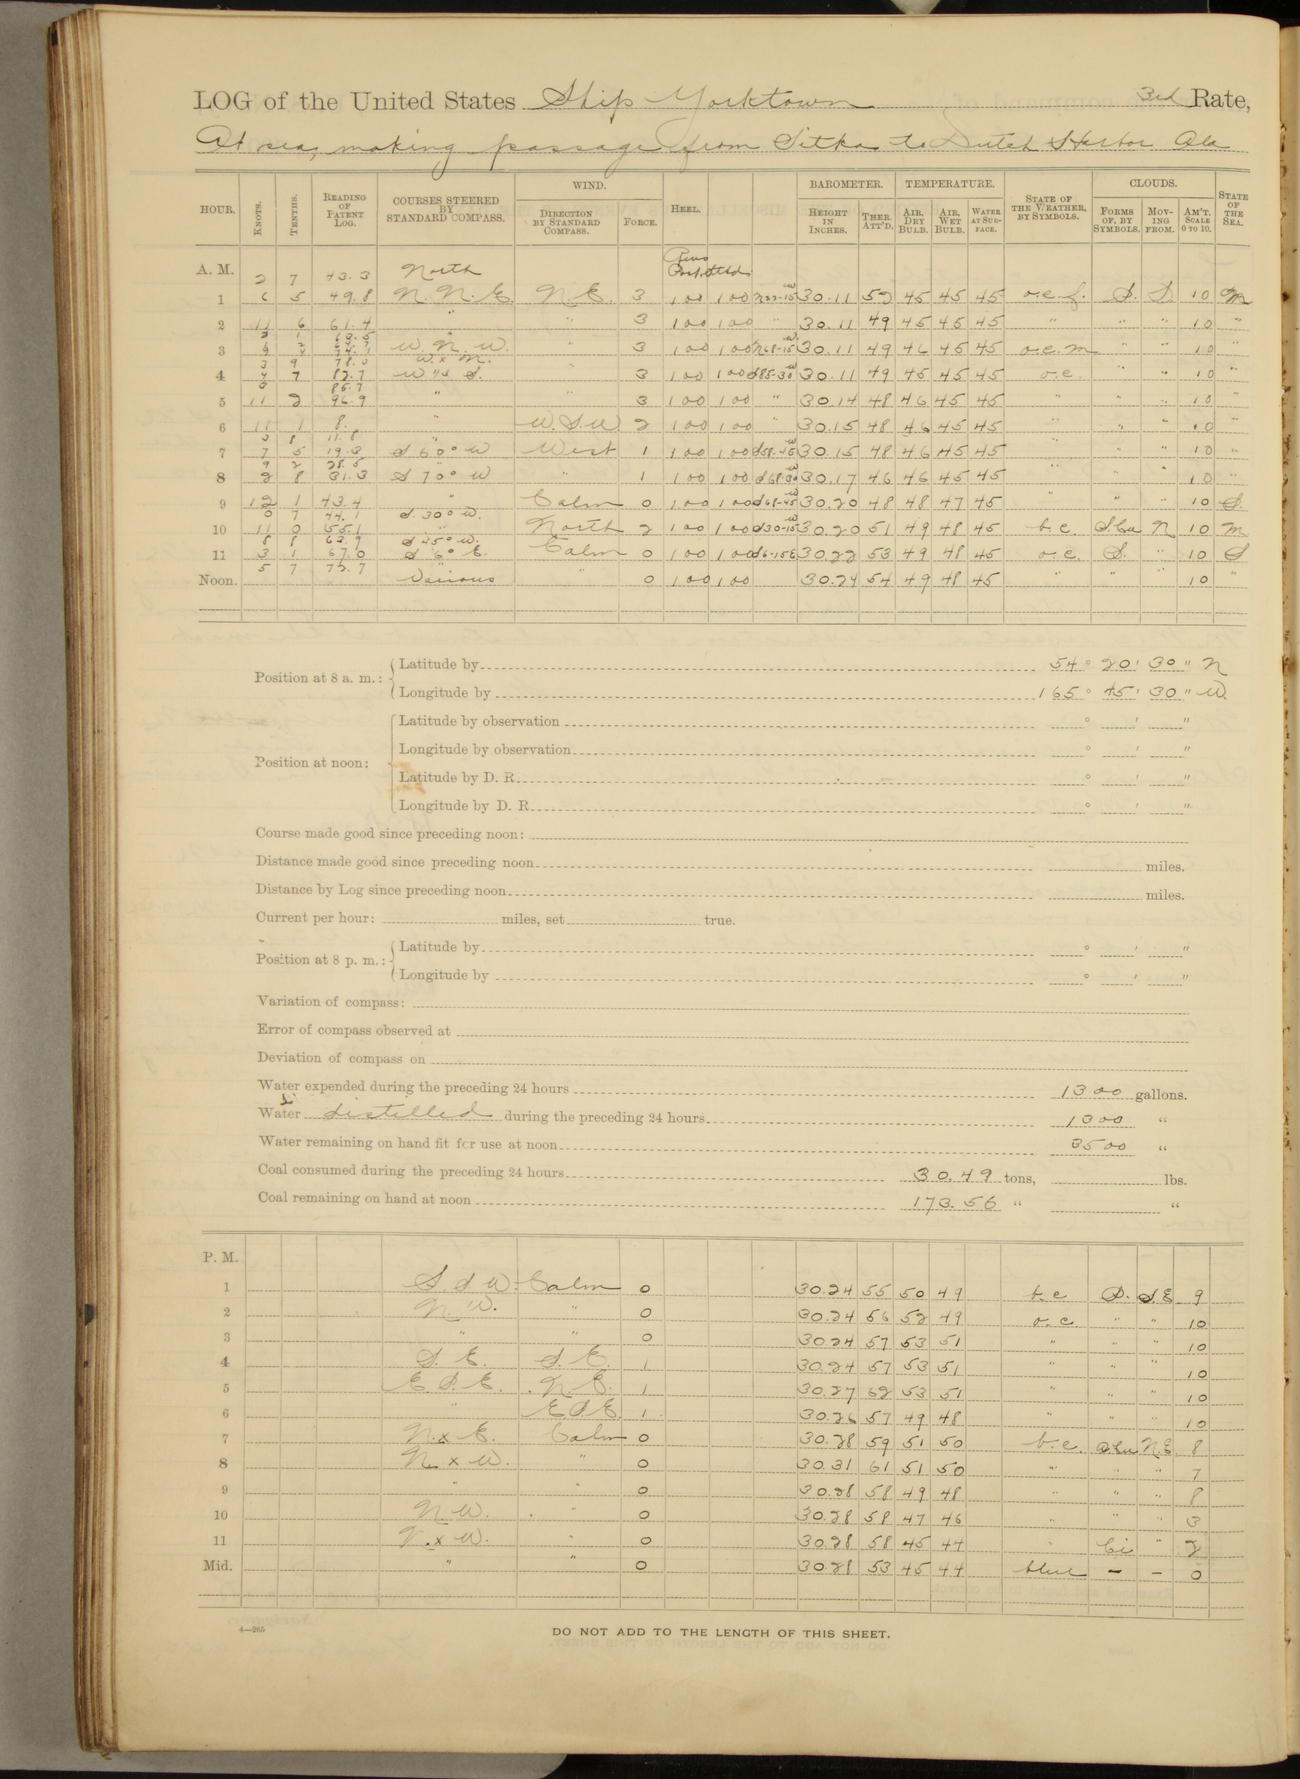 LOG of the United States Ship Yorktown 3rd Rate,
At sea, making passage from Sitka to Dutch Harbor Ala
HOUR. KNOTS. TENTHS. READING OF PATENT LOG. COURSES STEERED BY STANDARD COMPASS. WIND. DIRECTION BY STANDARD COMPASS. FORCE. HEEL. BAROMETER. HEIGHT IN INCHES. THER. ATT'D. TEMPERATURE. AIR, DRY BULB. AIR, WET BULB. WATER AT SURFACE. STATE OF THE WEATHER, BY SYMBOLS. CLOUDS. FORMS OF, BY SYMBOLS. MOVING FROM. AM'T. SCALE 0 TO 10. STATE OF THE SEA.
A. M. 2 7 43.3 North Revs Port Stbd.
1 6 5 49.8 N. N. E. N. E. 3 100 100 30.11 52 45 45 45 o.c.f. S. S. 10 M
2 11 6 61.4 " " 3 100 100 " 30.11 49 45 45 45 " " " 10 "
3 W. N. W. " 3 100 100 N68-15W 30.11 49 46 45 45 o.c.m " " 10 "
3 9 78.0 W. x N.
4 4 7 82.7 W x S. " 3 100 100 S85-30W 30.11 49 45 45 45 o.c. " " 10 "
85.7
5 11 2 96.9 " " 3 100 100 " 30.14 48 46 45 45 " " " 10 "
6 11 1 8. " W. S. W. 2 100 100 " 30.15 48 46 45 45 " " " 10 "
3 8 11.8
7 7 5 19.3 S 60° W West 1 100 100 30.15 48 46 45 45 " " " 10 "
9 2 28.5
8 2 8 31.3 S 70° W " 1 100 100 S68-30W 30.17 46 46 45 45 " " " 10 "
9 12 1 43.4 " Calm 0 100 100 S68-45W 30.20 48 48 47 45 " " " 10 S
0 7 44.1 S. 30° W.
10 11 0 55.1 " North 2 100 100 S30-15W 30.20 51 49 48 45 b. c. S.cu N 10 M
8 8 63.9 S 45° W.
11 3 1 67.0 S 6° E. Calm 0 100 100 S6-15E 30.22 53 49 48 45 o.c. S. " 10 S
5 7 72.7
Noon. Various " 0 100 100 30.24 54 49 48 45 " " " 10 "
Position at 8 a. m.: Latitude by 54° 20' 30" N
Longitude by 165° 45' 30" W.
Position at noon: Latitude by observation ° ' "
Longitude by observation ° ' "
Latitude by D. R. ° ' "
Longitude by D. R. ° ' "
Course made good since preceding noon:
Distance made good since preceding noon miles.
Distance by Log since preceding noon miles.
Current per hour: miles, set true.
Position at 8 p. m.: Latitude by ° ' "
Longitude by ° ' "
Variation of compass:
Error of compass observed at
Deviation of compass on
Water expended during the preceding 24 hours 1300 gallons.
Water distilled during the preceding 24 hours 1300 "
Water remaining on hand fit for use at noon 3500 "
Coal consumed during the preceding 24 hours 30.49 tons, lbs.
Coal remaining on hand at noon 173.56 " "
P. M.
1 S d W Calm 0 30.24 55 50 49 b. c S. S.E 9
2 N. W. " 0 30.24 56 52 49 o. c " " 10
3 " " 0 30.24 57 53 51 " " " 10
4 S. E. S. E. 1 30.24 57 53 51 " " " 10
5 E S. E. N. E. 1 30.27 62 53 51 " " " 10
6 " E S E 1 30.26 57 49 48 " " " 10
7 N. x E. Calm 0 30.28 59 51 50 b. c. S.cu N.E. 8
8 N. x W. " 0 30.31 61 51 50 " " " 7
9 " " 0 30.28 58 49 48 " " " 8
10 N. W. " 0 30.28 58 47 46 " " " 3
11 N. x W. " 0 30.28 58 45 44 " Ci " 2
Mid. " " 0 30.28 53 45 44 blue - - 0
4—265
DO NOT ADD TO THE LENGTH OF THIS SHEET.